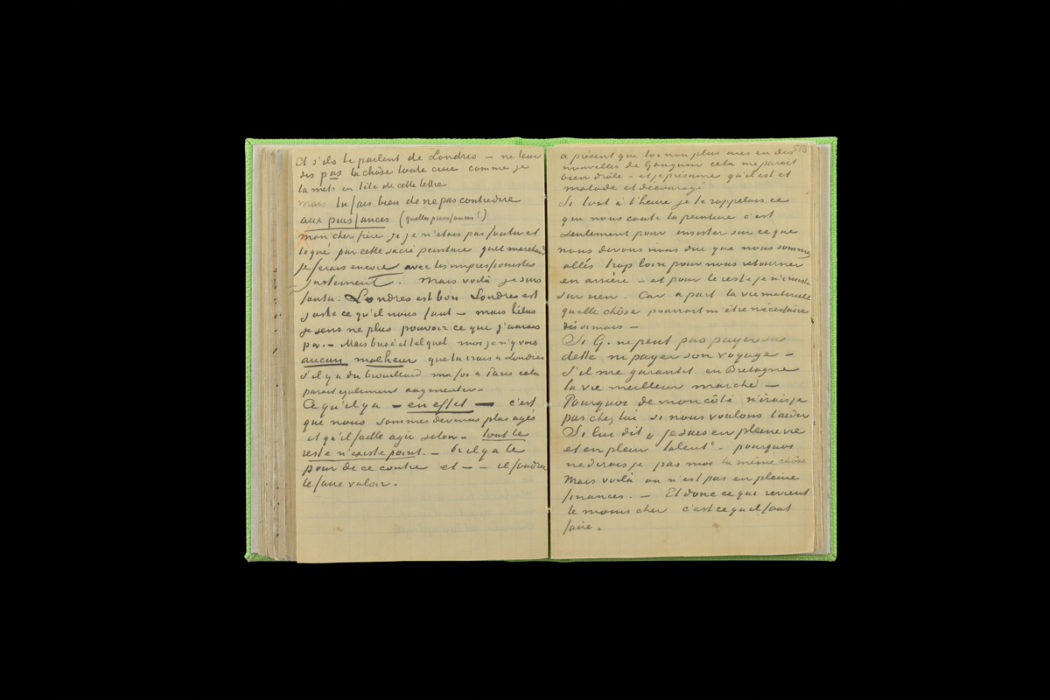 Et s'ils te parlent de Londres — ne leur
dis pas la chôse toute crue comme je
la mets en tête de cette lettre
mais tu fais bien de ne pas contredire
aux puissances (quelles puissances!)
Mon cher frère si je n'étais pas foutu et
toqué par cette sacrée peinture quel marchand
je ferais encore avec les impressionistes
justement. Mais voilà je suis
foutu. Londres est bon Londres est
juste ce qu'il nous faut — mais hélas
je sens ne plus pouvoir ce que j'aurais
pu. — Mais brisé et tel quel moi je n'y vois
aucun malheur que tu irais à Londres
s'il y a du brouillard ma foi à Paris cela
parait également augmenter —
Ce qu'il y a — en effet — c'est
que nous sommes devenus plus agés
et qu'il faille agir selon — tout le
reste n'existe point. — Or il y a le
pour de ce contre et — — il faudra
le faire valoir.
a présent que toi non plus aies eu des 513
nouvelles de Gauguin cela me parait
bien drôle — et je présume qu'il est et
malade et découragé
Si tout à l'heure je te rappelais ce
que nous coute la peinture c'est
seulement pour insister sur ce que
nous devons nous dire que nous sommes
allés trop loin pour nous retourner
en arrière — et pour le reste je n'insiste
sur rien. Car à part la vie materielle
quelle chôse pourrait m'être nécéssaire
désormais —
Si G. ne peut pas payer sa
dette ni payer son voyage —
S'il me garantit en Bretagne
la vie meilleur marché —
Pourquoi de mon côté n'irais je
pas chez lui si nous voulons l'aider
Si lui dit „je suis en pleine vie
et en plein talent" — pourquoi
ne dirais je pas moi la même chôse
Mais voilà on n'est pas en pleine
finances. — Et donc ce que revient
le moins cher c'est ce qu'il faut
faire.